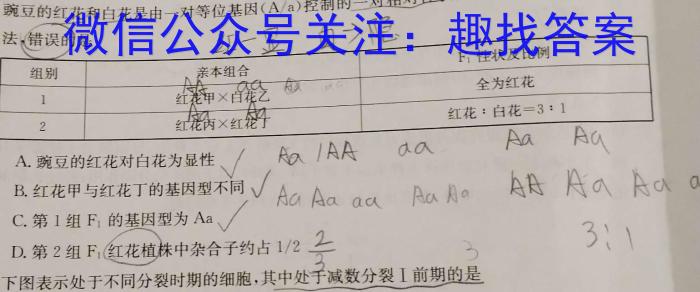 豌豆的红花和白花是由一对等位基因(A/a)控制的一对相对
微信公众号关注：趣找答案
法,错误的
组别 亲本组合 F₁ 性状及比例
AA aa Aa aa
1 红花甲×白花乙 全为红花
Aa Aa
2 红花丙×红花丁 红花：白花=3：1
A. 豌豆的红花对白花为显性 √ Aa/AA aa Aa Aa
B. 红花甲与红花丁的基因型不同 √ Aa Aa aa Aa Aa AA Aa Aa a
C. 第 1 组 F₁ 的基因型为 Aa √
D. 第 2 组 F₁ 红花植株中杂合子约占 1/2 2/3 3 3:1
下图表示处于不同分裂时期的细胞,其中处于减数分裂Ⅰ前期的是